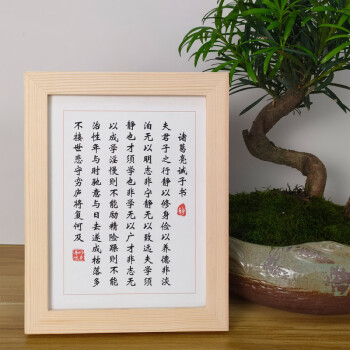 诸葛亮诫子书
夫君子之行静以修身俭以养德非淡
泊无以明志非宁静无以致远夫学须
静也才须学也非学无以广才非志无
以成学淫慢则不能励精险躁则不能
治性年与时驰意与日去遂成枯落多
不接世悲守穷庐将复何及